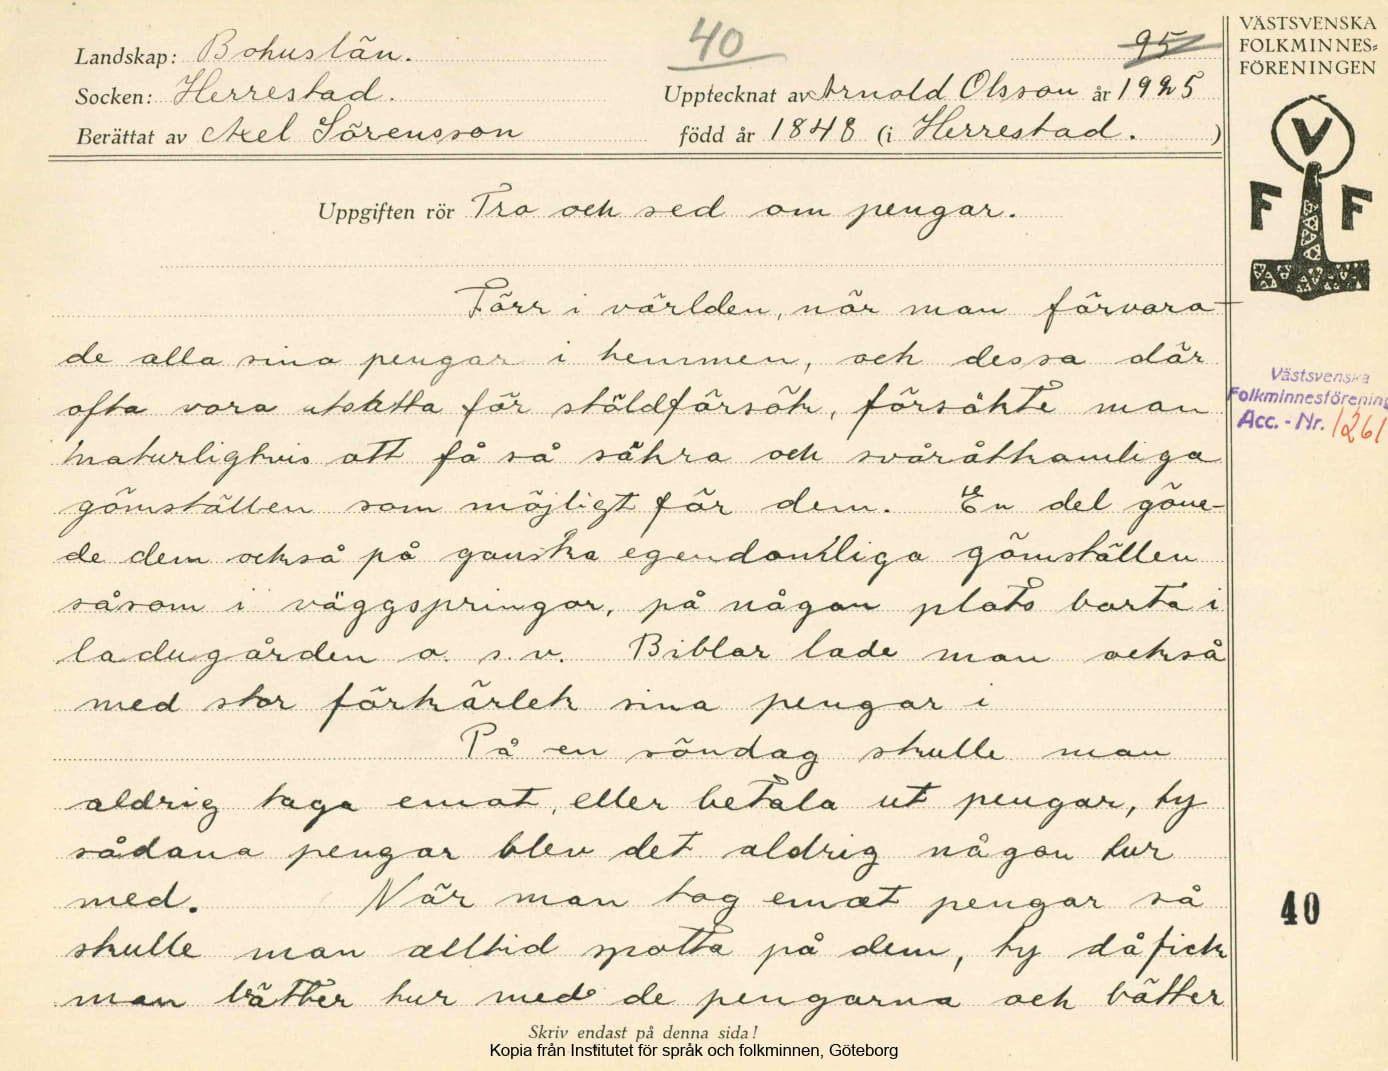 40
95
Landskap: Bohuslän.
Socken: Herrestad.
Upptecknat av Arnold Olsson år 1925
Berättat av Axel Sörensson
född år 1848 (i Herrestad.)
Uppgiften rör Tro och sed om pengar.
Förr i världen, når man förvara-
de alla sina pengar i hemmen, och dessa där
ofta voro utsatta för stöldförsök, försökte man
naturligtvis att få så säkra och svåråtkomliga
gömställen som möjligt för dem. En del göme-
de dem också på ganska egendomliga gömställen
såsom i väggspringor, på någon plats borta i
ladugården o. s. v. Biblar lade man också
med stor förkärlek sina pengar i
På en söndag skulle man
aldrig taga emot, eller betala ut pengar, ty
sådana pengar blev det aldrig någon tur
med. När man tog emot pengar så
skulle man alltid spotta på dem, ty då fick
man bätter tur med de pengarna och bätter
Skriv endast på denna sida!
Kopia från Institutet för språk och folkminnen, Göteborg
VÄSTSVENSKA
FOLKMINNES-
FÖRENINGEN
V
F F
Västsvenska
Folkminnesförening
Acc. - Nr. 1261
40